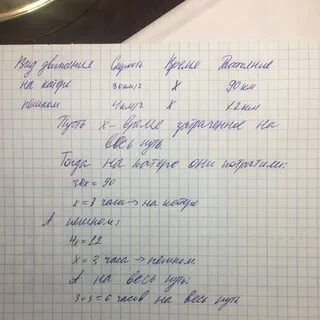 Вид движения Скорость Время Расстояние
на катере 30км/ч х 90км
пешком 4км/ч х 12км
Пусть х - время затраченное на
весь путь
Тогда на катере они потратили:
30х=90
х=3 часа → на катере
А пешком:
4х=12
х=3 часа → пешком
А на весь путь:
3+3=6 часов на весь путь